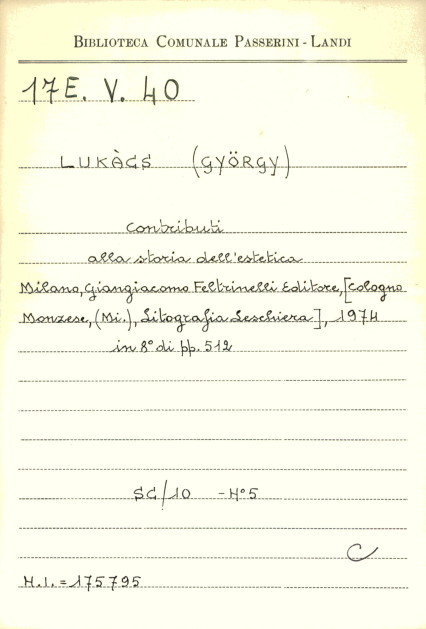 BIBLIOTECA COMUNALE PASSERINI - LANDI
17E. V. 40
LUKÀCS (GYÖRGY)
Contributi
alla storia dell'estetica
Milano, Giangiacomo Feltrinelli Editore, [Cologno
Monzese, (Mi.), Litografia Leschiera], 1974
in 8° di pp. 512
SG/10 - N° 5
C
N.I. = 175795